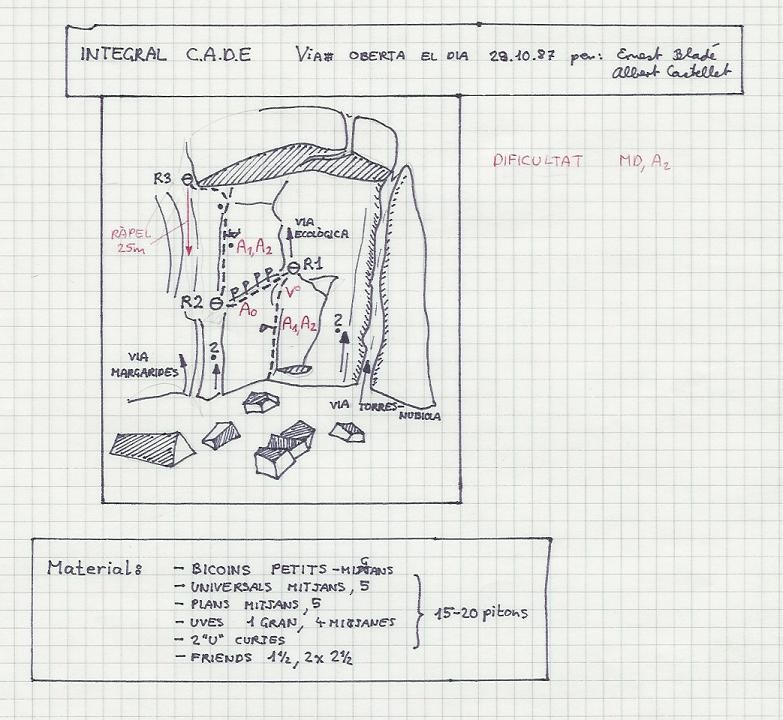 INTEGRAL C.A.D.E Via OBERTA EL DIA 28.10.87 per: Ernest Bladé
Albert Castellet
DIFICULTAT MD, A2
R3
RÀPEL
25m
VIA
ECOLÒGICA
A1, A2
R1
PPPP
V°
R2
A0
A1, A2
?
?
VIA
MARGARIDES
VIA TORRES-
NUBIOLA
Material:
- BICOINS PETITS - MITJANS
- UNIVERSALS MITJANS, 5
- PLANS MITJANS, 5
- UVES 1 GRAN, 4 MITJANES
- 2 "U" CURTES
- FRIENDS 1½, 2x 2½
15-20 pitons